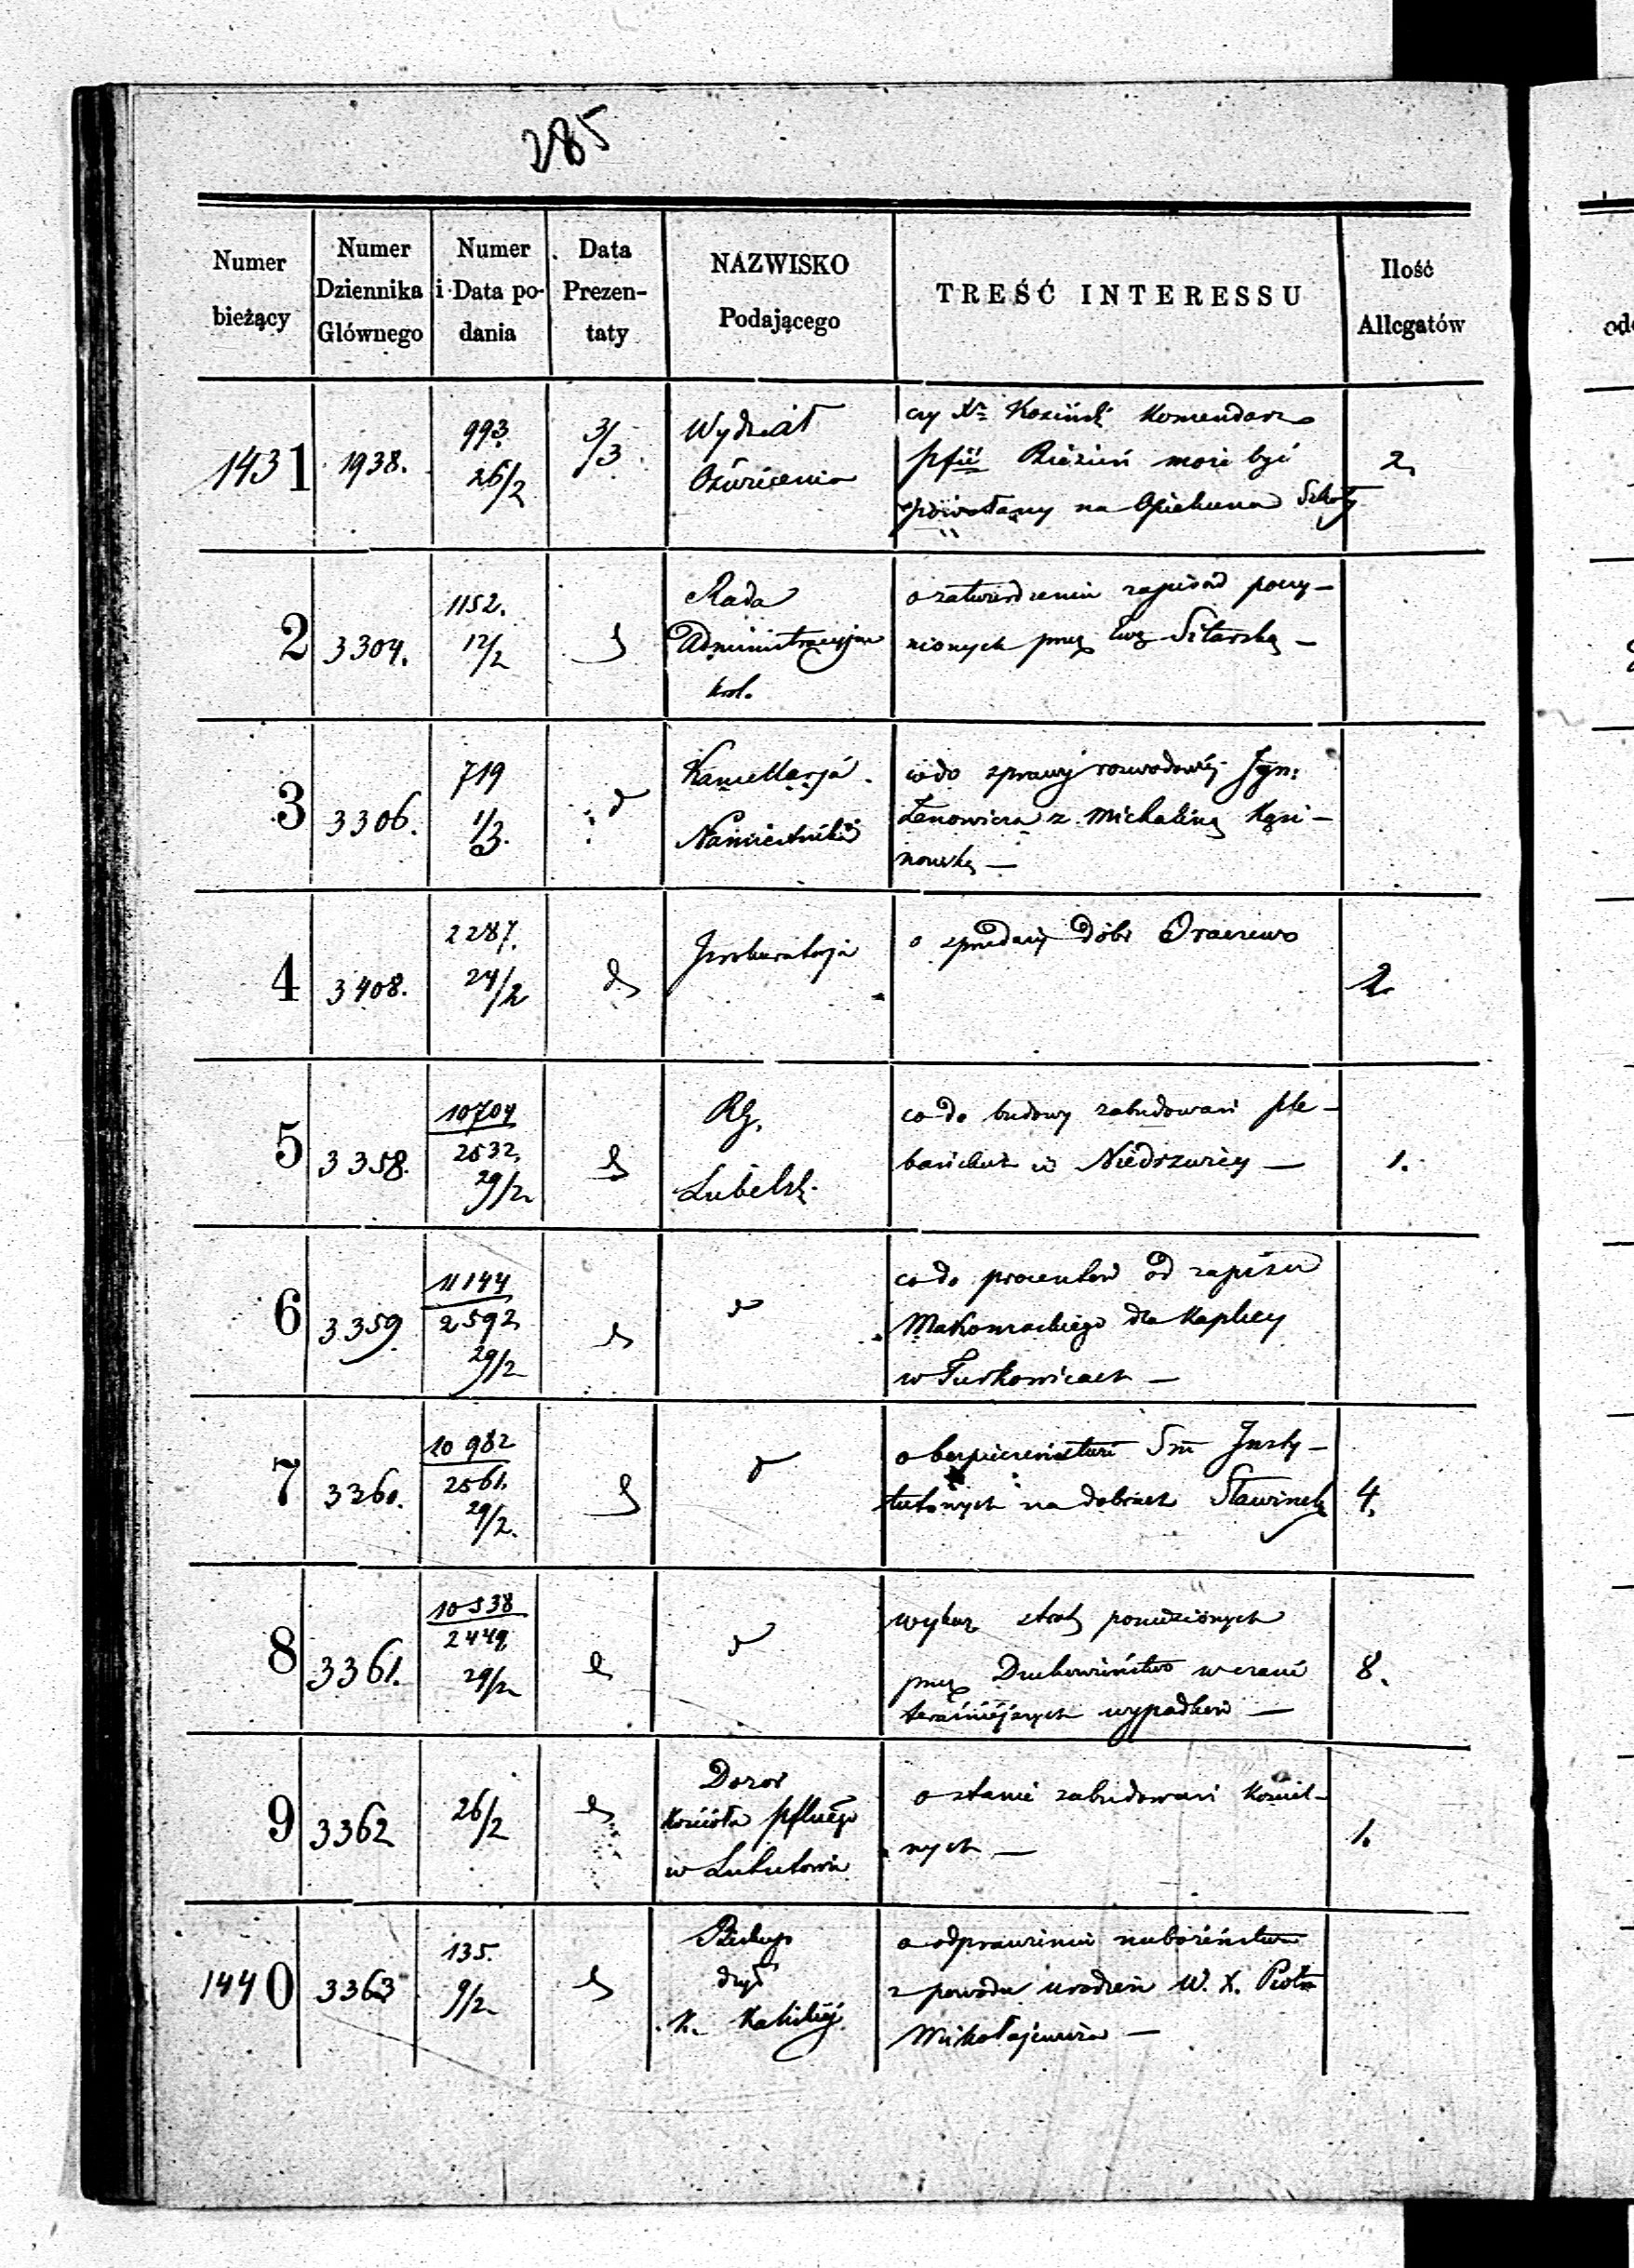 285
Numer bieżący
Numer Dziennika Głównego
Numer i Data podania
Data Prezentaty
NAZWISKO Podającego
TREŚĆ INTERESSU
Ilość Allegatów
1431 1938. 993. 26/2 3/3 Wydział Oświecenia
czy Xr. Kosiński Komendarz
może być
powołany na Opiekuna Szkoły
2.
2 3304. 1152. 12/2 Rada Administracyjna Krol.
o zatwierdzeniu zapisów poczy-
nionych przez Ewę Sitarską —
3 3306. 719 1/3. Kancellarja Namiestnika
co do sprawy rozwodowéj Ign:
z Michaliną
nowską —
4 3408. 2287. 24/2 d Prokuratorja
o sprzedaży dóbr
2.
5 3358. 10704 2532. 29/2 RG. Lubelsk.
co do budowy zabudowań ple-
bańskich w Niedrzwicy —
1.
6 3359. 11144 2592 29/2
co do procentów od zapisu
dla Kaplicy
w Turkowicach —
7 3360. 10982 2561. 29/2.
o bezpieczeństwie Sm Insty-
tutowych na dobrach Sławinek
4.
8 3361. 10538 2449 29/2
wykaz strat poniesionych
przez Duchowieństwo w czasie
teraźniejszych wypadków —
8.
9 3362 26/2 Dozór Kościoła w Lubartowie
o stanie zabudowań Kościel-
nych —
1.
1440 3363 135. 9/2 Biskup dyec K. Kaliskiéj
o odprawieniu nabożeństwa
z powodu urodzin W. X. Piotra
Mikołajewicza —